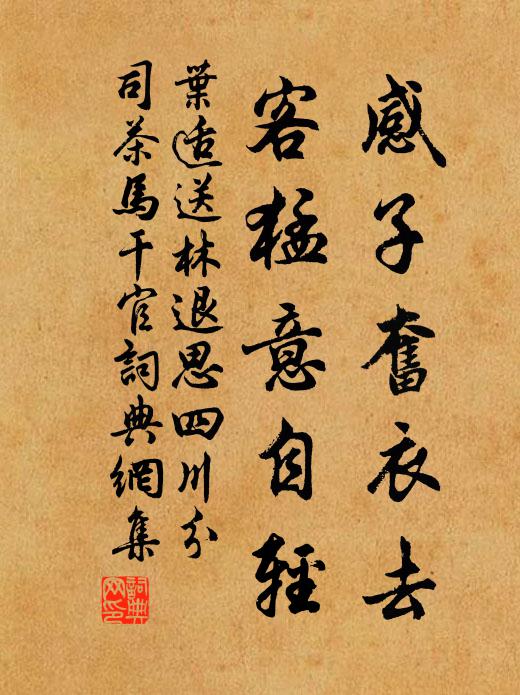 感子奮衣去
客猛意自輕
葉适送林退思四川分
司茶馬干官詞典網集
詞典
网印